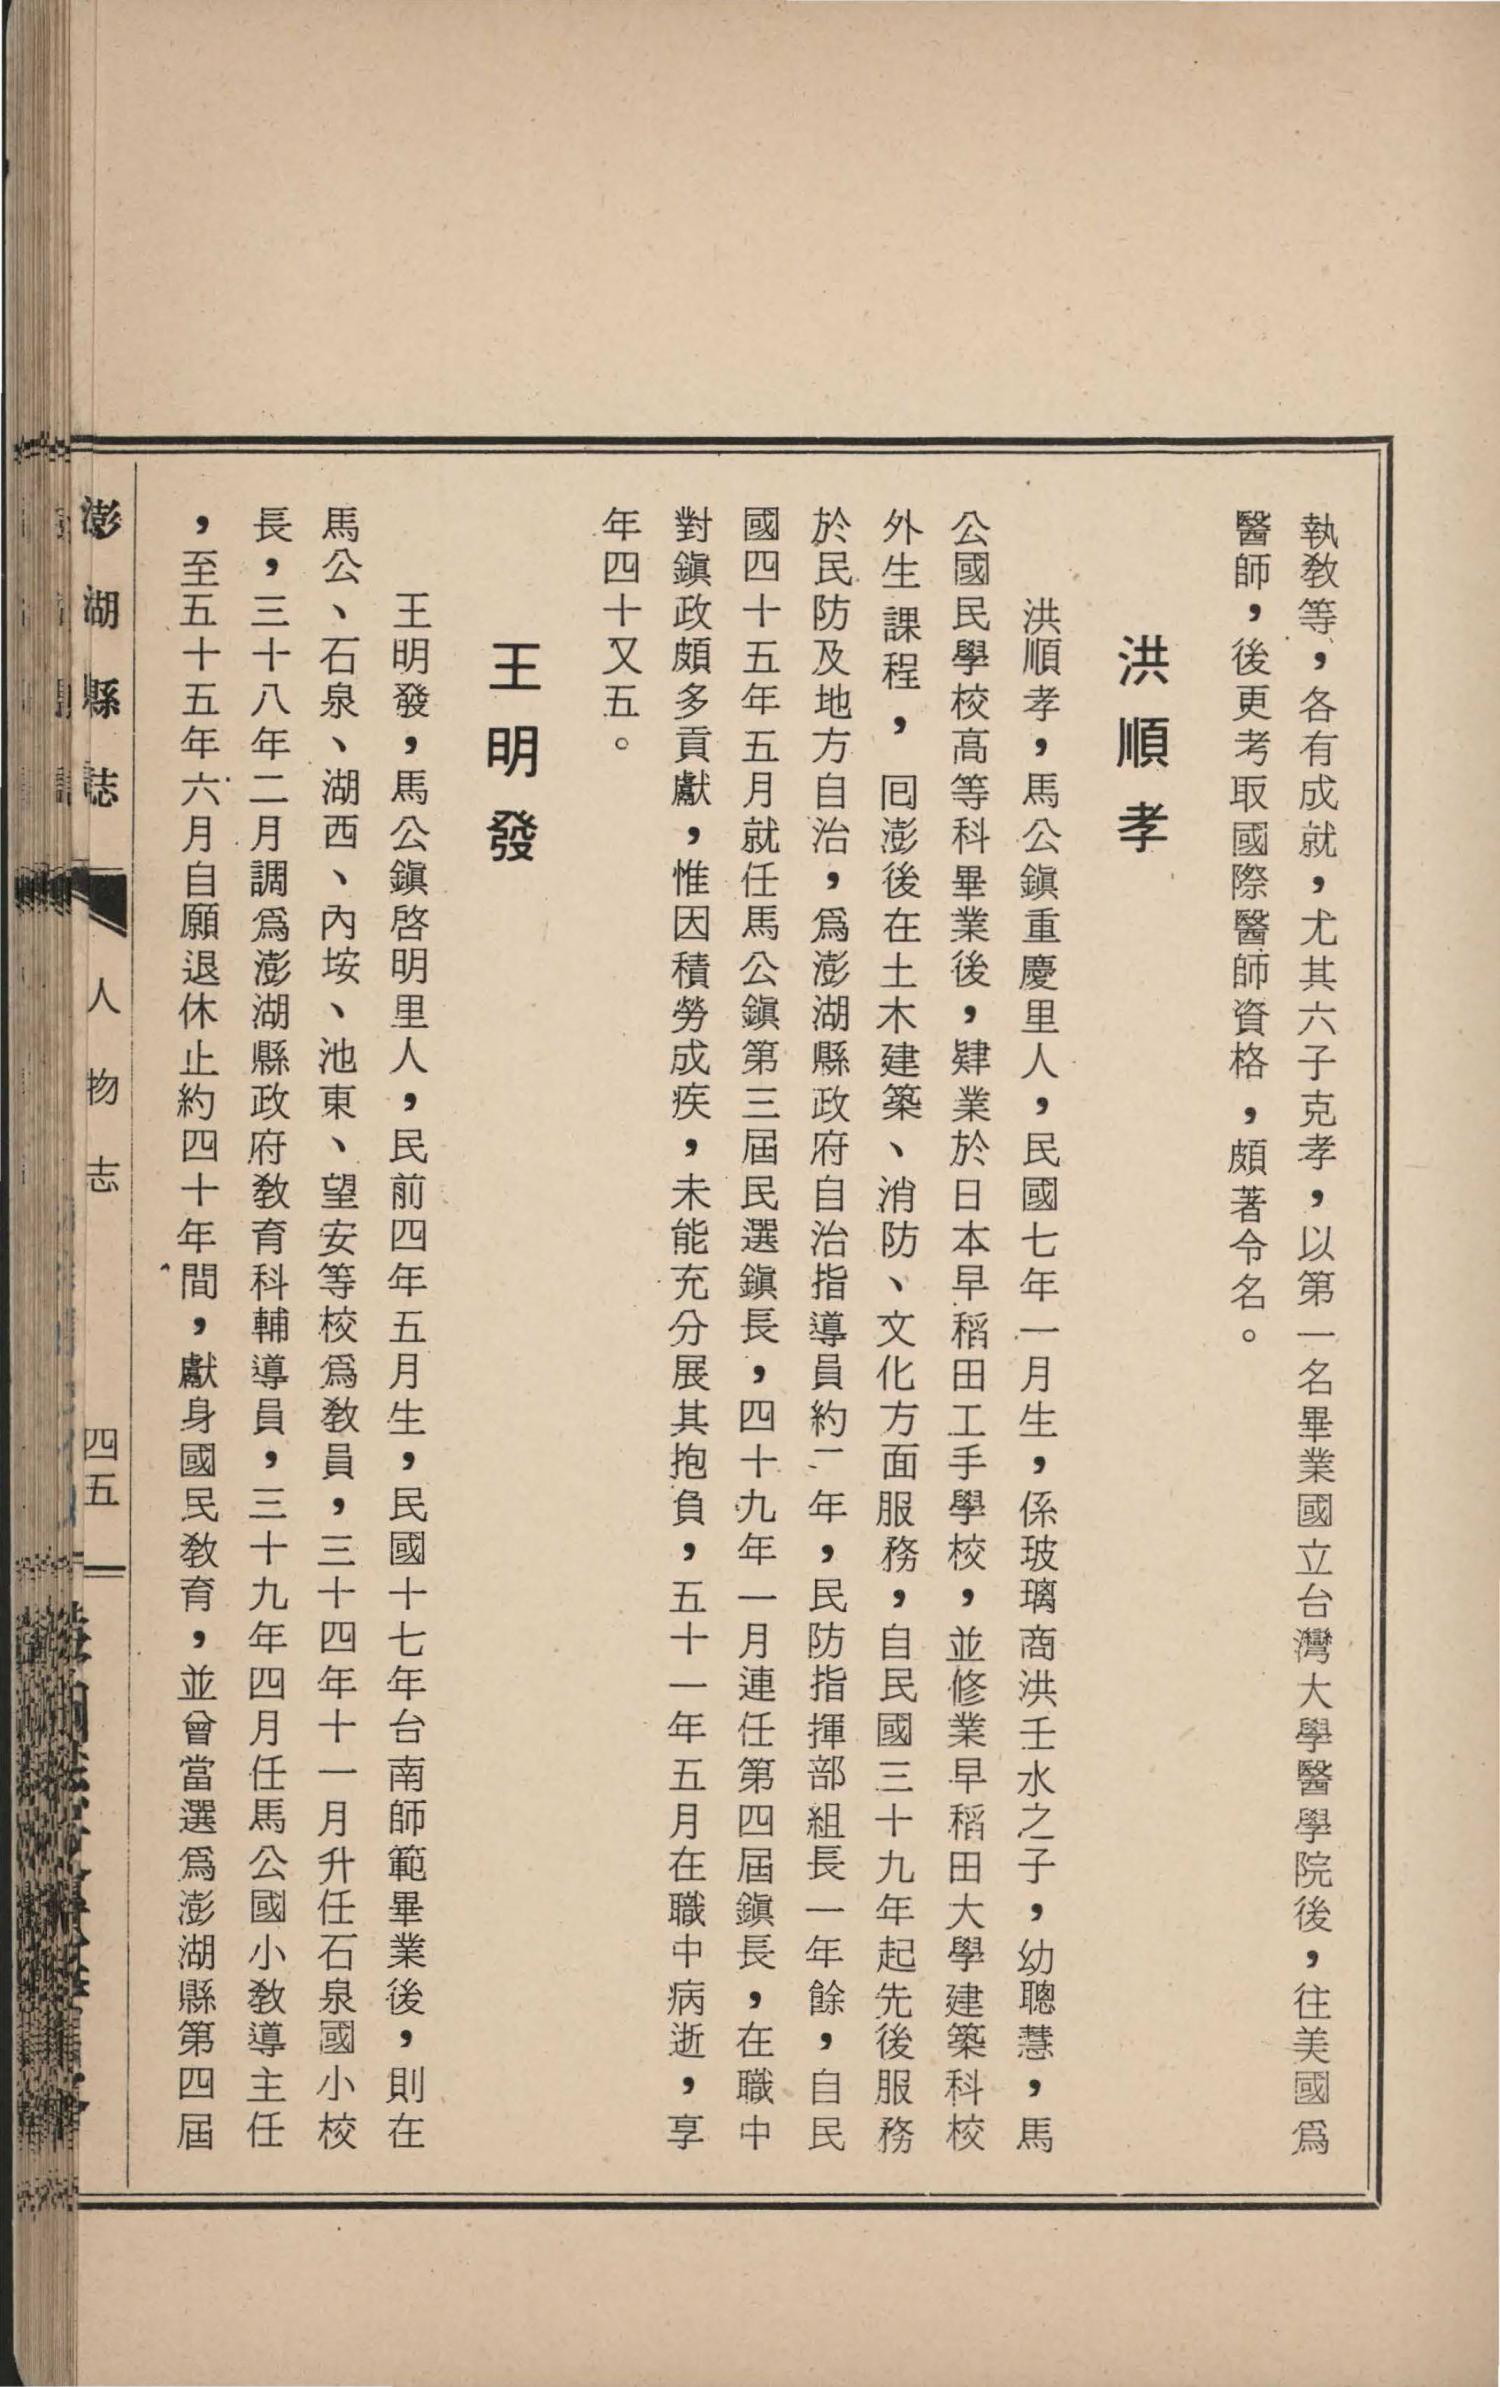 執教等，各有成就，尤其六子克孝，以第一名畢業國立台灣大學醫學院後，往美國爲
醫師，後更考取國際醫師資格，頗著令名。
洪順孝
洪順孝，馬公鎭重慶里人，民國七年一月生，係玻璃商洪壬水之子，幼聰慧，馬
公國民學校高等科畢業後，肄業於日本早稻田工手學校，並修業早稻田大學建築科校
外生課程，囘澎後在土木建築、消防、文化方面服務，自民國三十九年起先後服務
於民防及地方自治，爲澎湖縣政府自治指導員約二年，民防指揮部組長一年餘，自民
國四十五年五月就任馬公鎭第三屆民選鎭長，四十九年一月連任第四屆鎭長，在職中
對鎭政頗多貢獻，惟因積勞成疾，未能充分展其抱負，五十一年五月在職中病逝，享
年四十又五。
王明發
王明發，馬公鎭啓明里人，民前四年五月生，民國十七年台南師範畢業後，則在
馬公、石泉、湖西、內垵、池東、望安等校爲教員，三十四年十一月升任石泉國小校
長，三十八年二月調爲澎湖縣政府教育科輔導員，三十九年四月任馬公國小教導主任
，至五十五年六月自願退休止約四十年間，獻身國民教育，並曾當選爲澎湖縣第四屆
澎湖縣誌 人物志 四五